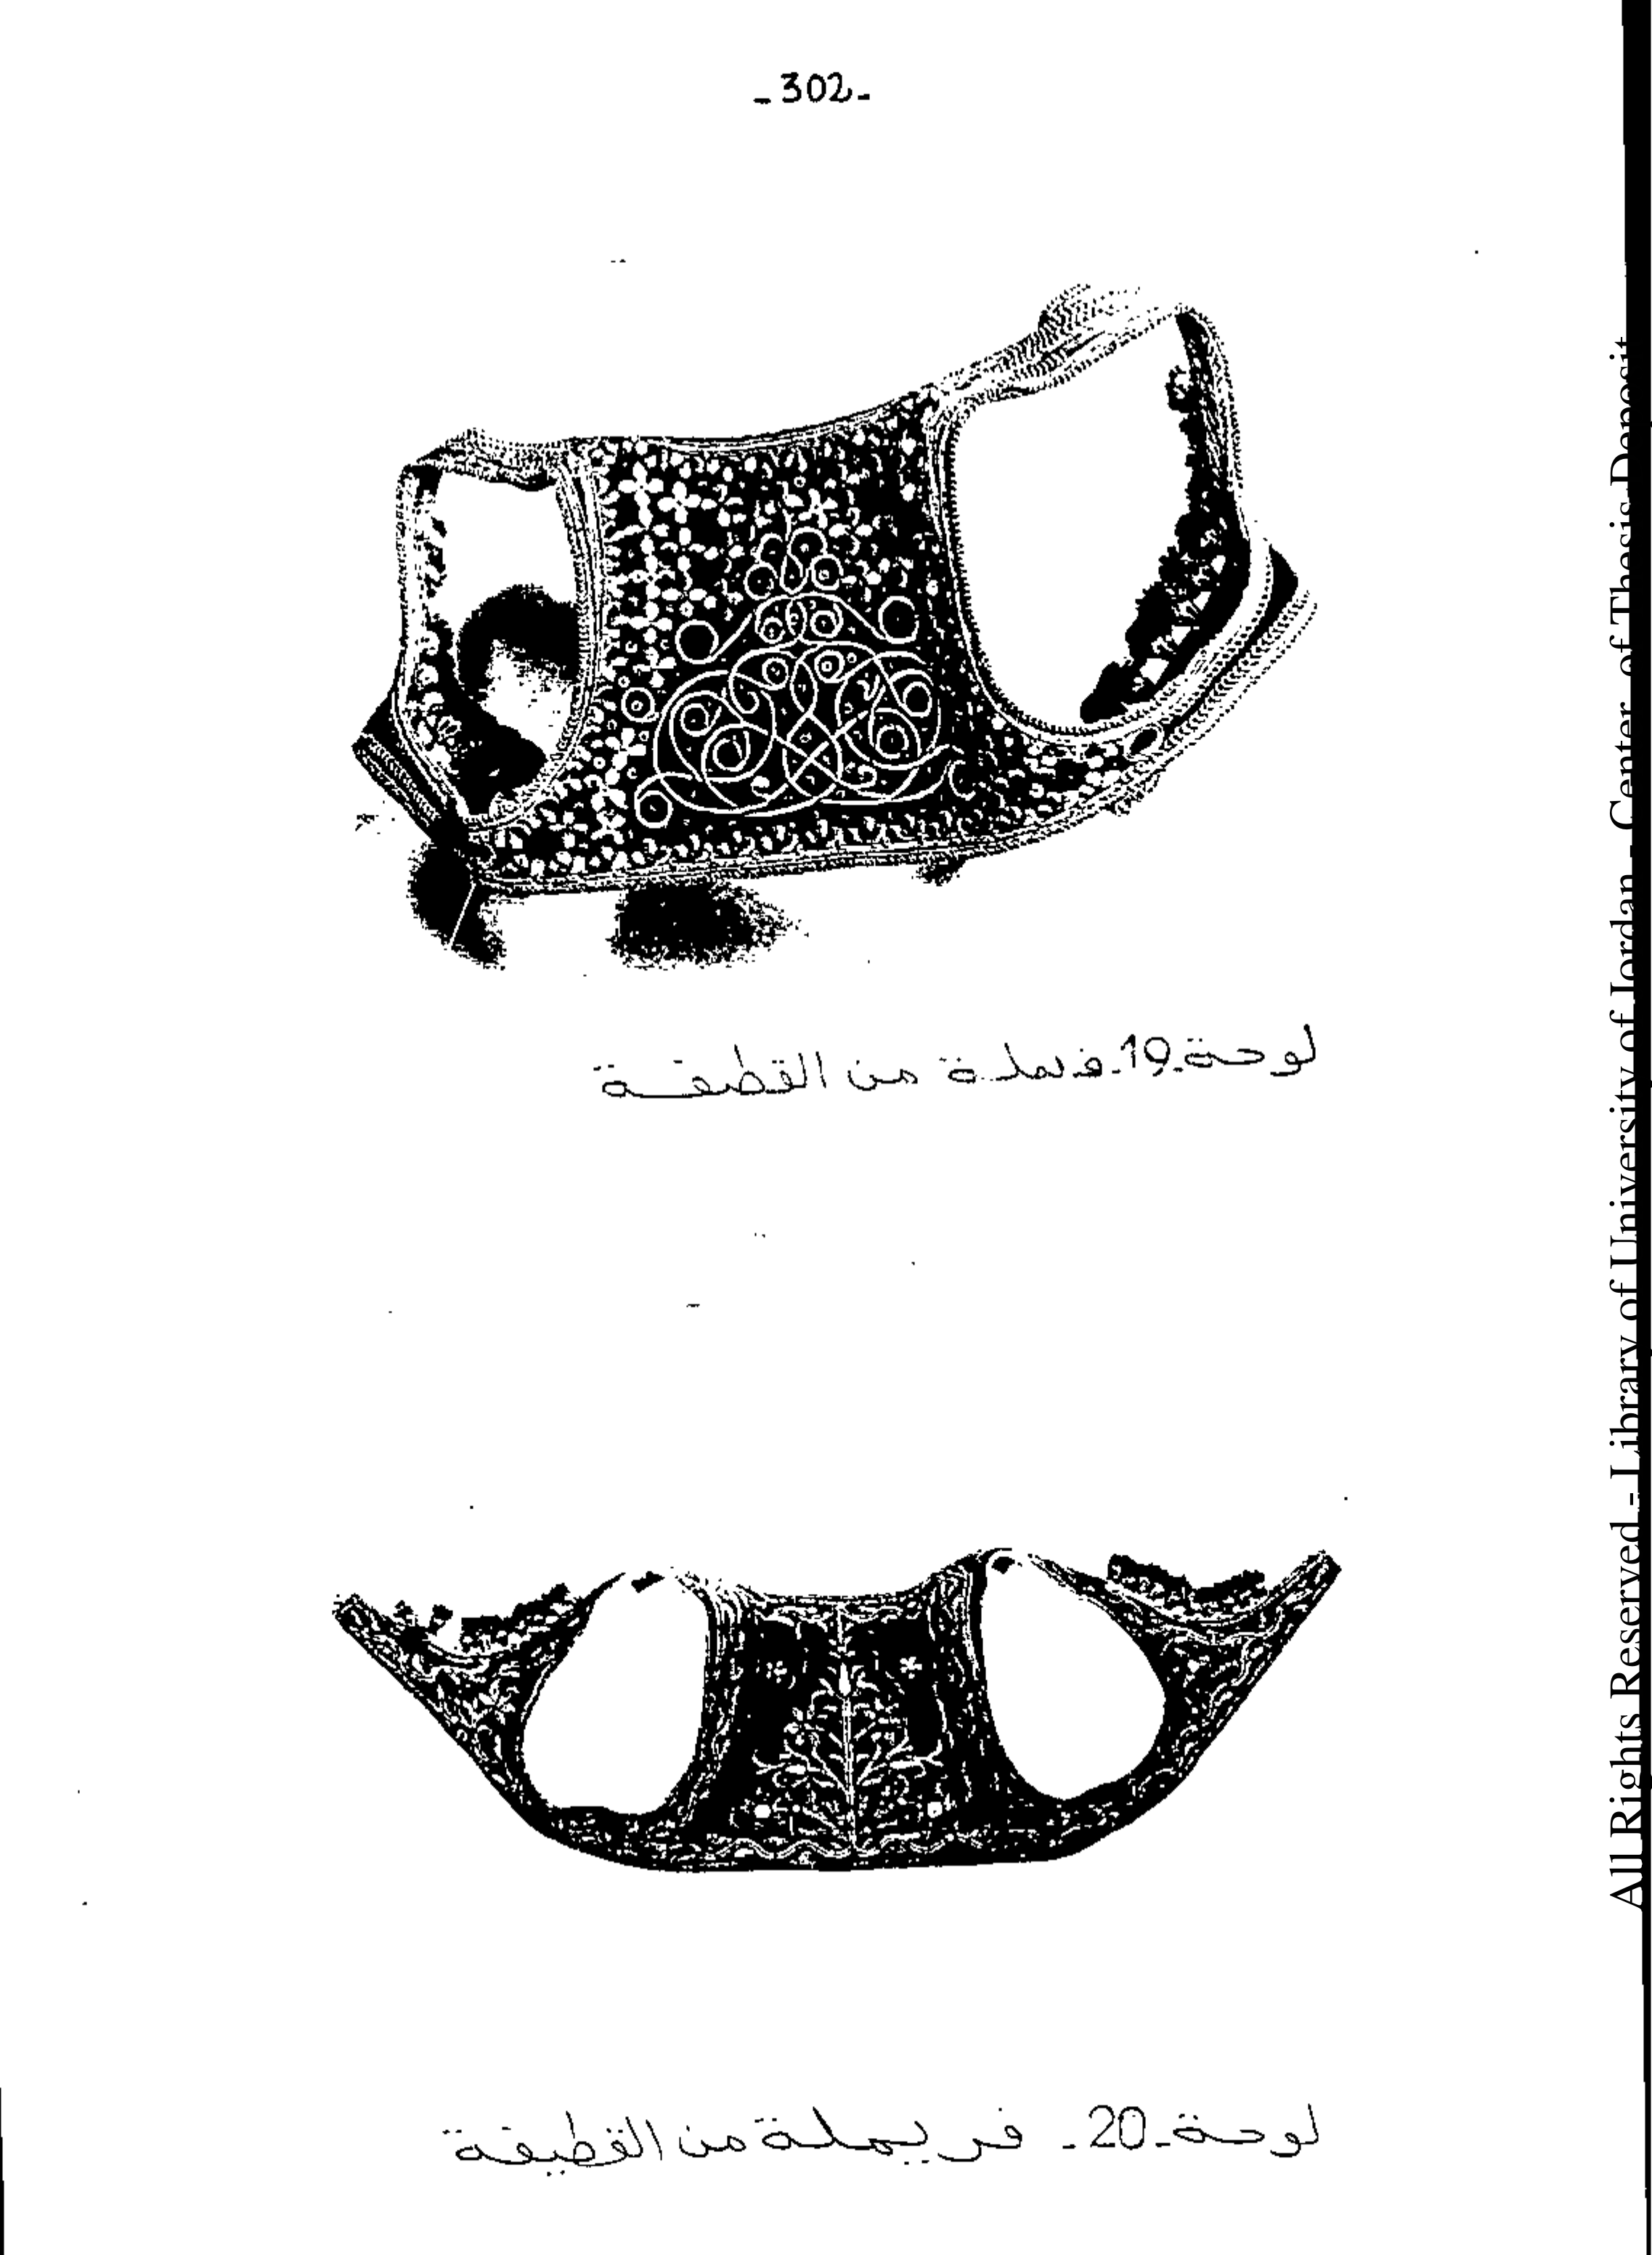 -302-
لوحة-19-فريملة من القطيفة
لوحة-20- فريملة من القطيفة
All Rights Reserved - Library of University of Jordan - Center of Thesis Deposit